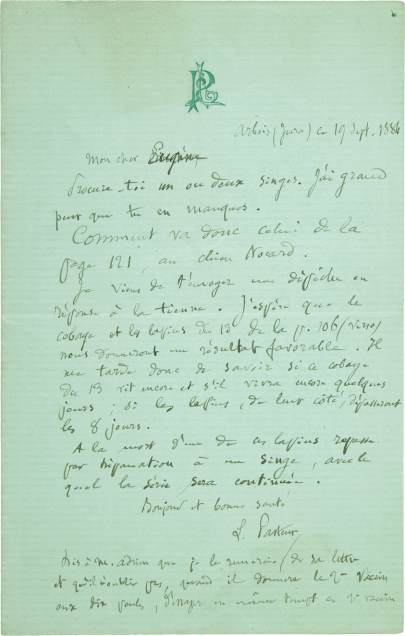 PL
Arbois (Jura) ce 19 Sept. 1884
Mon cher Eugène
Procure-toi un ou deux singes. J'ai grand
peur que tu en manques.
Comment va donc celui de la
page 121, au chien Nocard.
Je viens de t'envoyer une dépêche en
réponse à la tienne. J'espère que le
cobaye et les lapins du 13 de la p. 106 (verso)
nous donneront un résultat favorable. Il
me tarde donc de savoir si ce cobaye
du 13 vit encore et s'il vivra encore quelques
jours ; si les lapins, de leur côté, dépasseront
les 8 jours.
A la mort d'un de ces lapins repasse
par trépanation à un singe, avec le
quel la série sera continuée.
Bonjour et bonne santé
L. Pasteur
Dis à M. Adrien que je le remercie de sa lettre
et qu'il n'oublie pas, quand il donnera le 2e vaccin
aux dix poules, d'essayer en même temps ce 2e vaccin